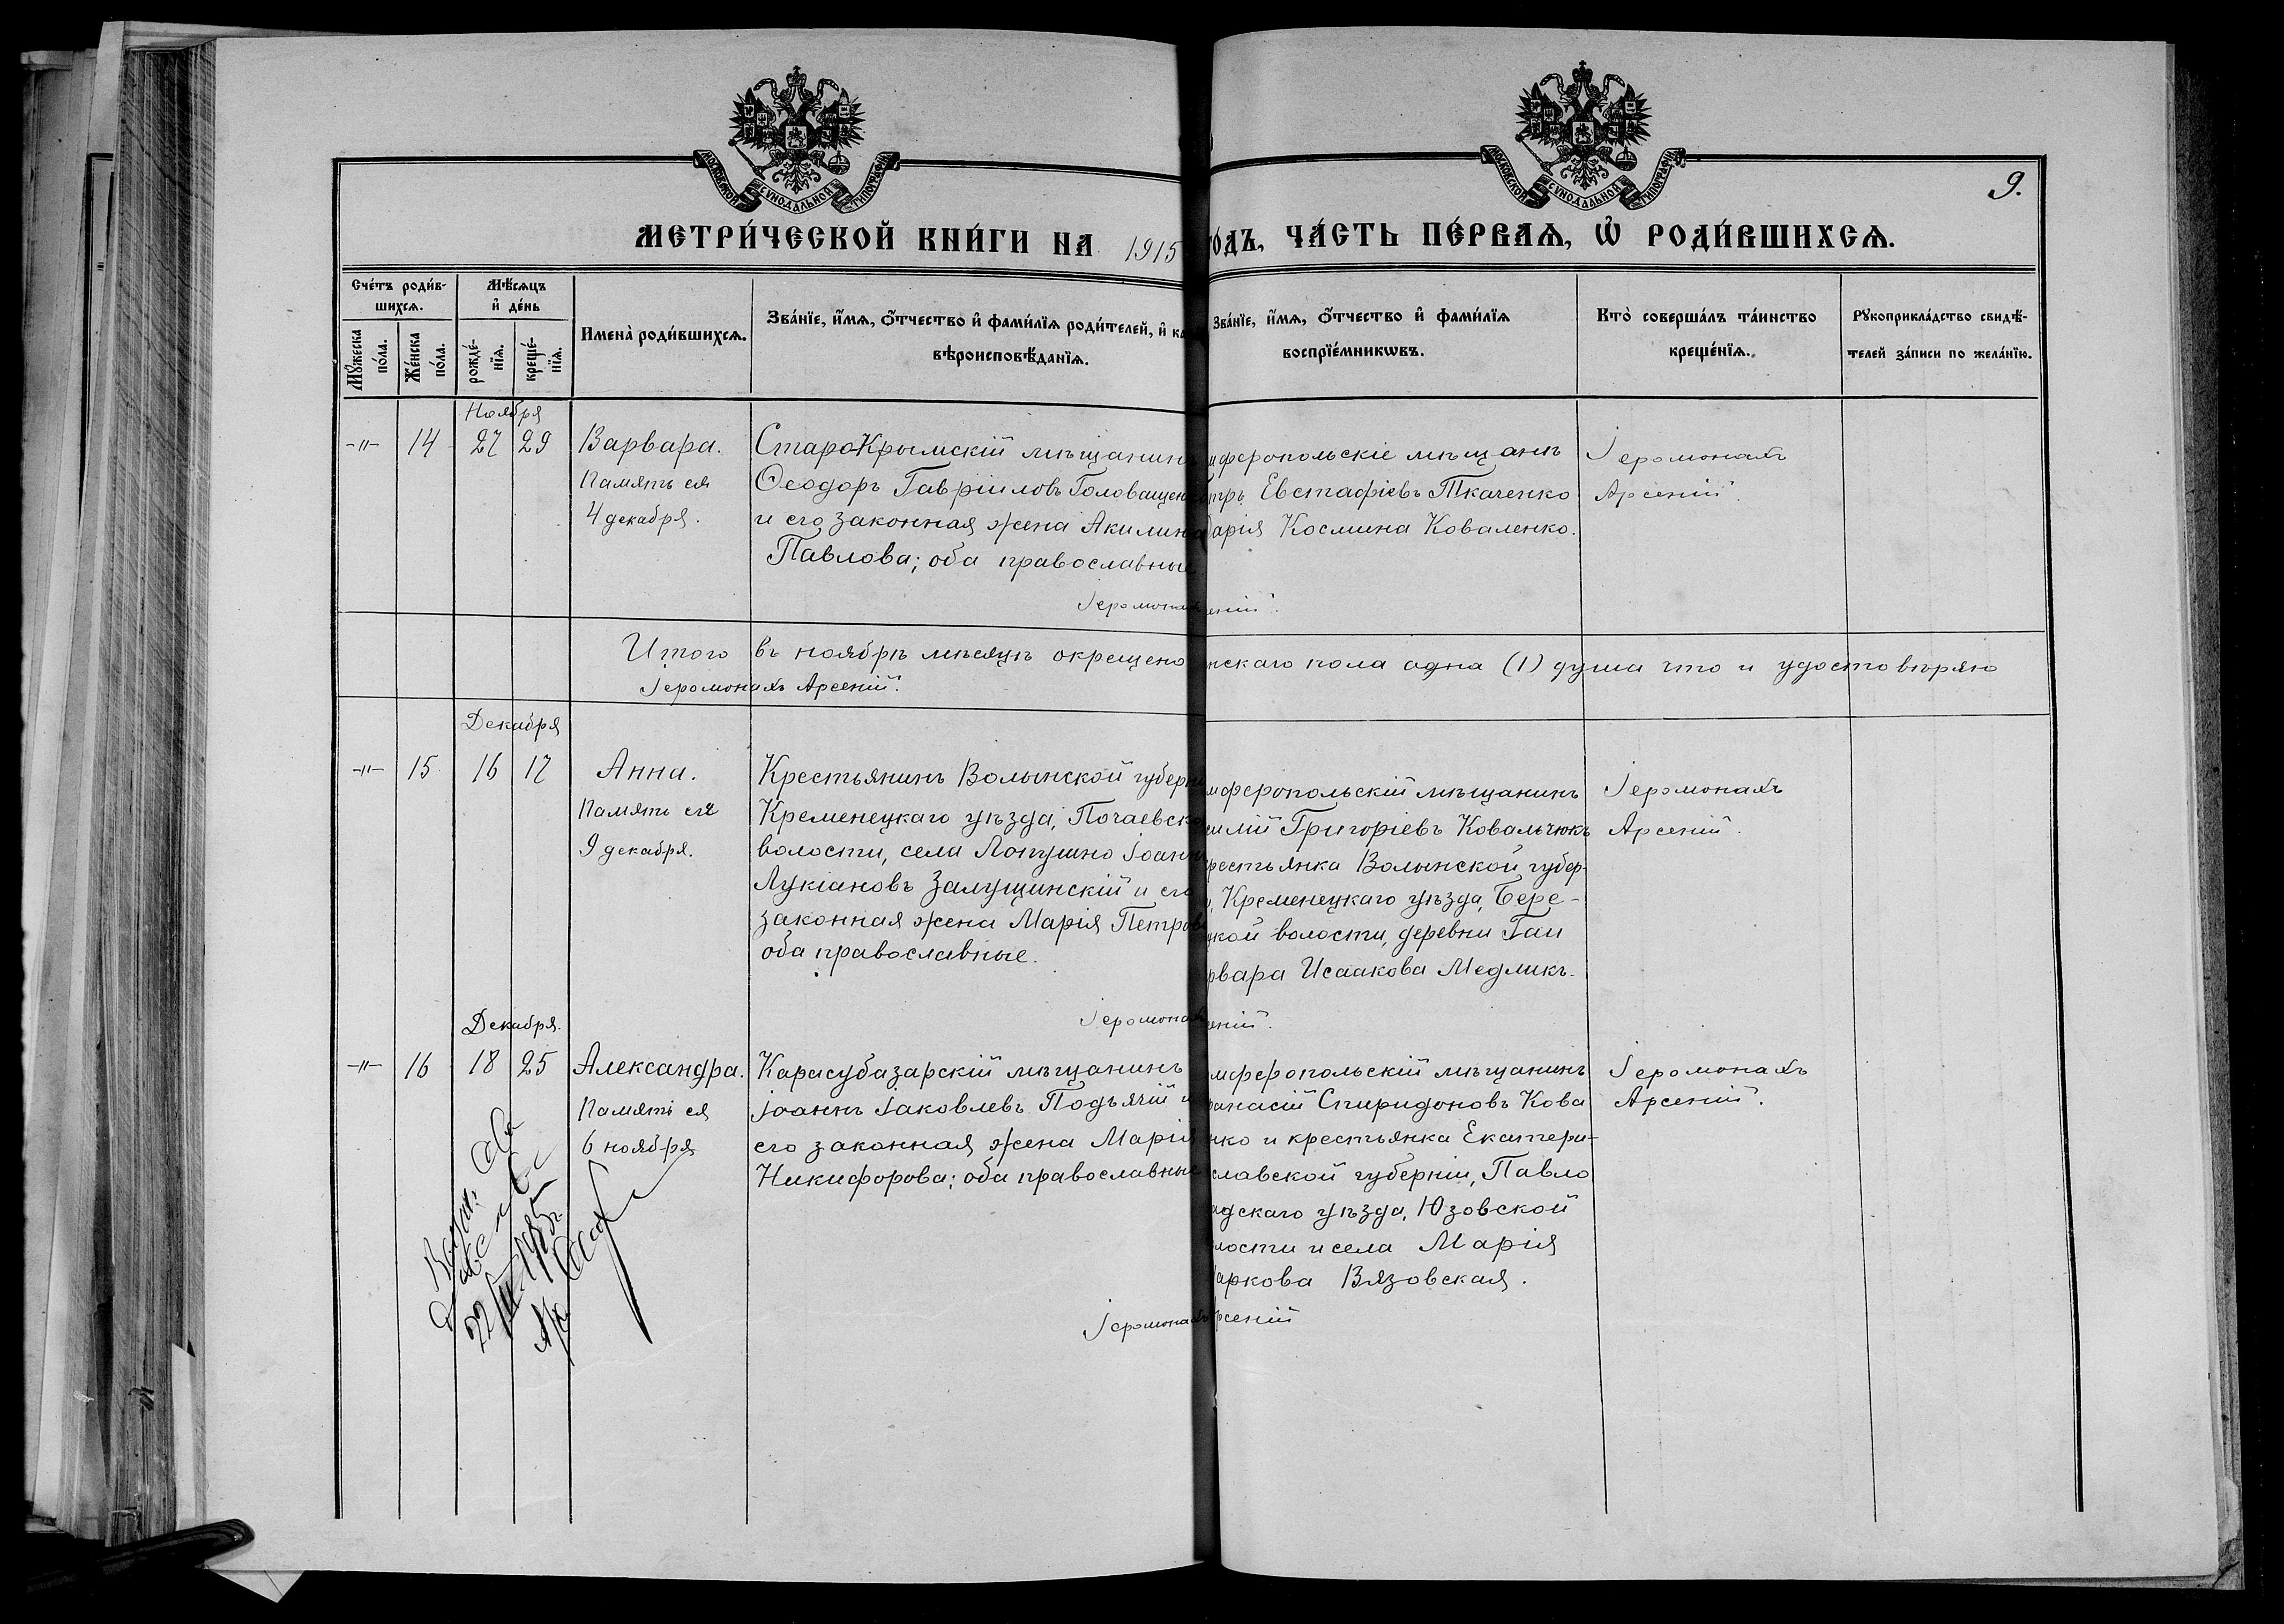 МОСКОВСКОЙ СѴНОДАЛЬНОЙ ТИПОГРАФІИ
МОСКОВСКОЙ СѴНОДАЛЬНОЙ ТИПОГРАФІИ
9.
МЕТРИ́ЧЕСКОЙ КНИ́ГИ НА 1915
ГО́ДЪ, ЧА́СТЬ ПЕ́РВАѦ, Ѡ҆ РОДИ́ВШИХСѦ.
Сче́тъ роди́в-
шихсѧ.
Мꙋ́жеска по́ла.
Же́нска по́ла.
Мѣ́сѧцъ
и҆ де́нь
рожде́-нїѧ.
креще́-нїѧ.
Имена̀ роди́вшихсѧ.
Зва́нїе, и҆́мѧ, ѻ҆́тчество и҆ фами́лїѧ роди́телей, и҆ ка
вѣроисповѣ́данїѧ.
Зва́нїе, и҆́мѧ, ѻ҆́тчество и҆ фами́лїѧ
воспрїе́мникѡвъ.
Кто̀ соверша́лъ та́инство
креще́нїѧ.
Рꙋкоприкла́дство свидѣ́-
телей за́писи по жела́нїю.
Ноября
-"- 14 27 29 Варвара. СтароКрымскій мѣщанинъ
Память ея Ѳеодоръ Гавріиловъ Головащен
4 декабря. и его законная жена Акилина
Павлова; оба православные
мферопольскіе мѣщане
етръ Евстафіевъ Ткаченко
арія Космина Коваленко.
Іеромонахъ
Арсеній.
Іеромонахъ
еній.
Итого въ ноябрѣ мѣсяцѣ окрещено
нскаго пола одна (1) душа что и удостовѣряю
Іеромонахъ Арсеній.
Декабря
-"- 15 16 17 Анна. Крестьянинъ Волынской губерн
Память ея Кременецкаго уѣзда, Почаевско
9 декабря. волости, села Лопушно Іоанн
Лукіановъ Залущинскій и его
законная жена Марія Петров
оба православные.
мферопольскій мѣщанинъ
силій Григоріевъ Ковальчюкъ
рестьянка Волынской губер-
Кременецкаго уѣзда, Бере-
цкой волости, деревни Гаи
рвара Исаакова Медликъ.
Іеромонахъ
Арсеній.
Іеромонах
еній.
Декабря.
-"- 16 18 25 Александра. Карасубазарскій мѣщанинъ
Память ея Іоаннъ Іаковлевъ Подъячій и
6 ноября его законная жена Марія
Никифорова; оба православные
мферопольскій мѣщанинъ
анасій Спиридоновъ Кова
нко и крестьянка Екатери-
славской губерніи, Павло
адскаго уѣзда, Юзовской
лости и села Марія
аркова Вязовская.
Іеромонахъ
Арсеній.
Іеромонахъ
рсеній